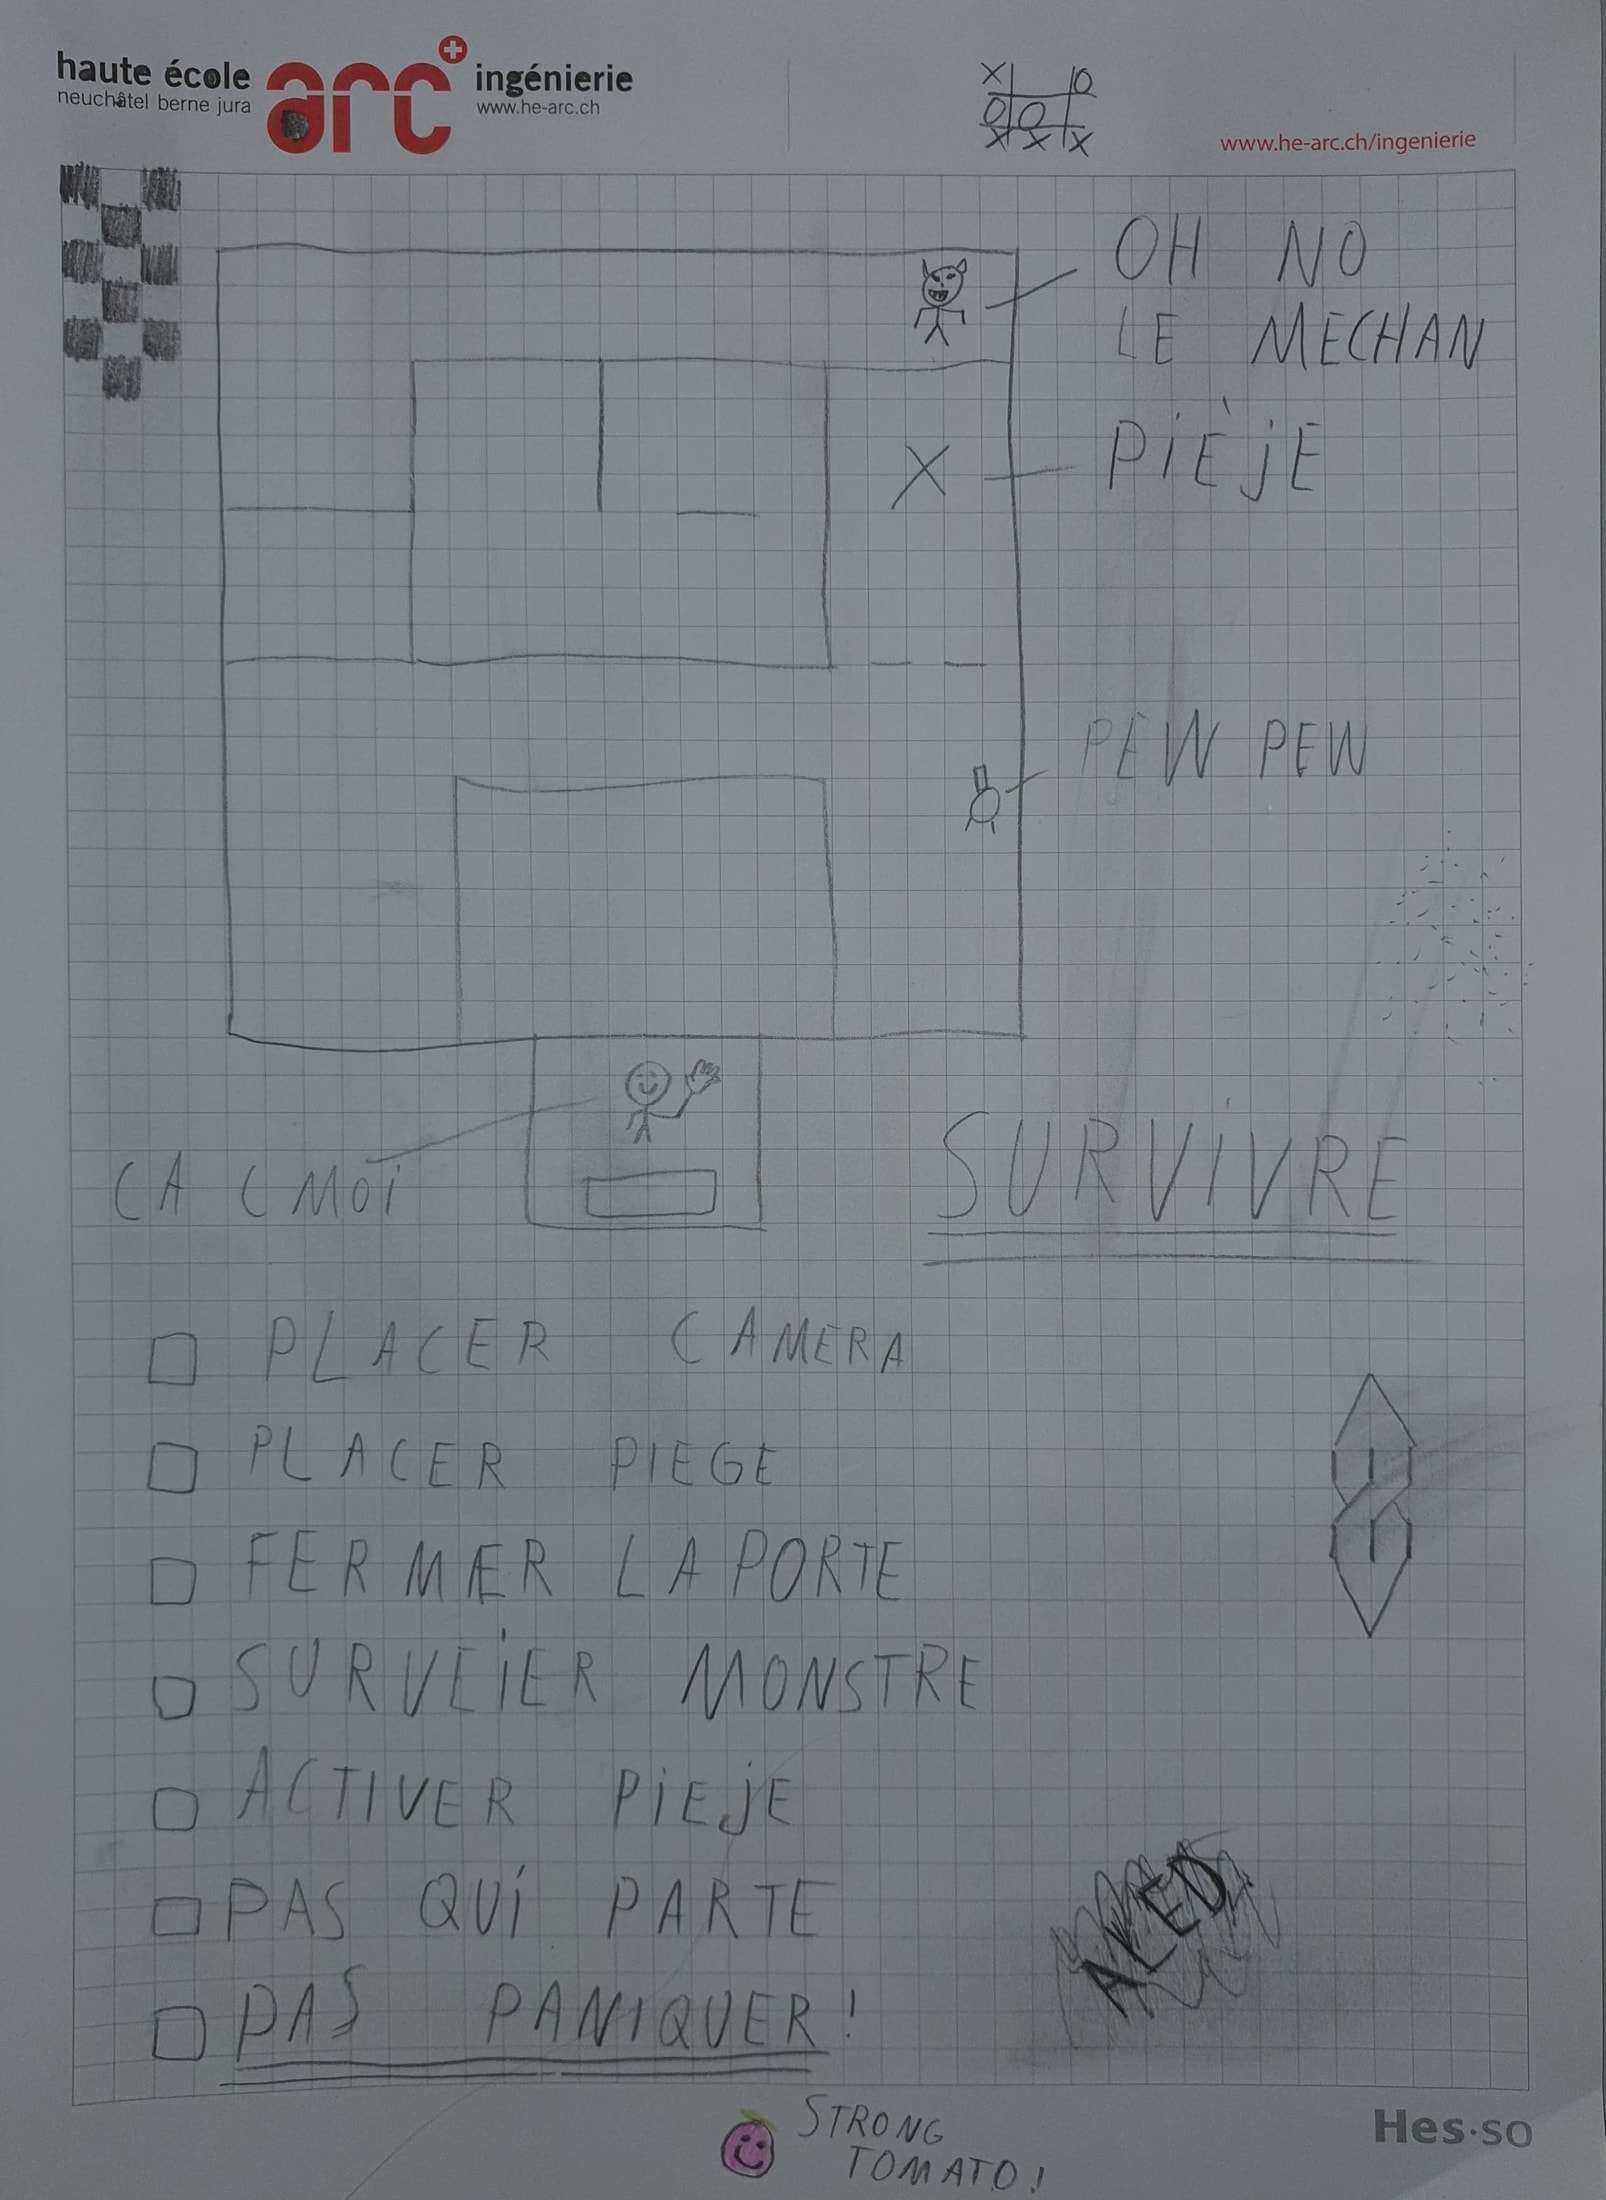 haute école arc ingénierie
neuchâtel berne jura www.he-arc.ch
X O
O O
X X X
www.he-arc.ch/ingenierie
OH NO
LE MECHAN
PIÈjE
X
PEW PEW
CA C MOi
SURViVRE
PLACER CAMERA
PLACER PIEGE
FERMER LA PORTE
SURVEiER MONSTRE
ACTIVER PiEjE
PAS QUi PARTE
PAS PANIQUER!
ALED
STRONG
TOMATO!
Hes·so